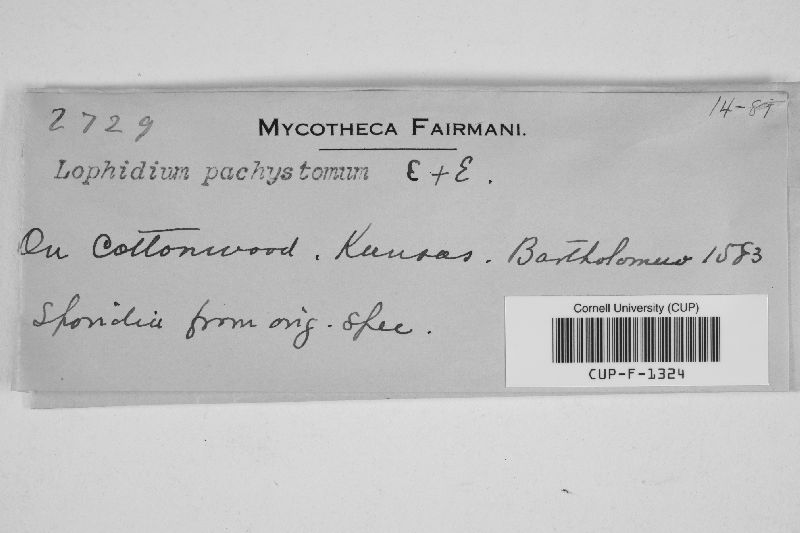 2729
14-87
MYCOTHECA FAIRMANI.
Lophidium pachystomum E + E.
On Cottonwood. Kansas. Bartholomew 1583
Sporidia from orig. spec.
Cornell University (CUP)
CUP-F-1324